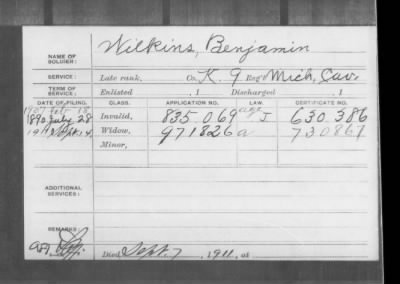 Wilkins, Benjamin
NAME OF
SOLDIER:
SERVICE: Late rank, Co. K. 9 Reg't Mich, Cav.
TERM OF
SERVICE: Enlisted , 1 Discharged , 1
DATE OF FILING. CLASS. APPLICATION NO. LAW. CERTIFICATE NO.
1907 Feb. 18 age
1890 July 28 Invalid, 835.069 J. 630.386
1911 14 Widow, 971826 a 730861
Minor,
ADDITIONAL
SERVICES:
REMARKS:
Died Sept. 7, 1911, at